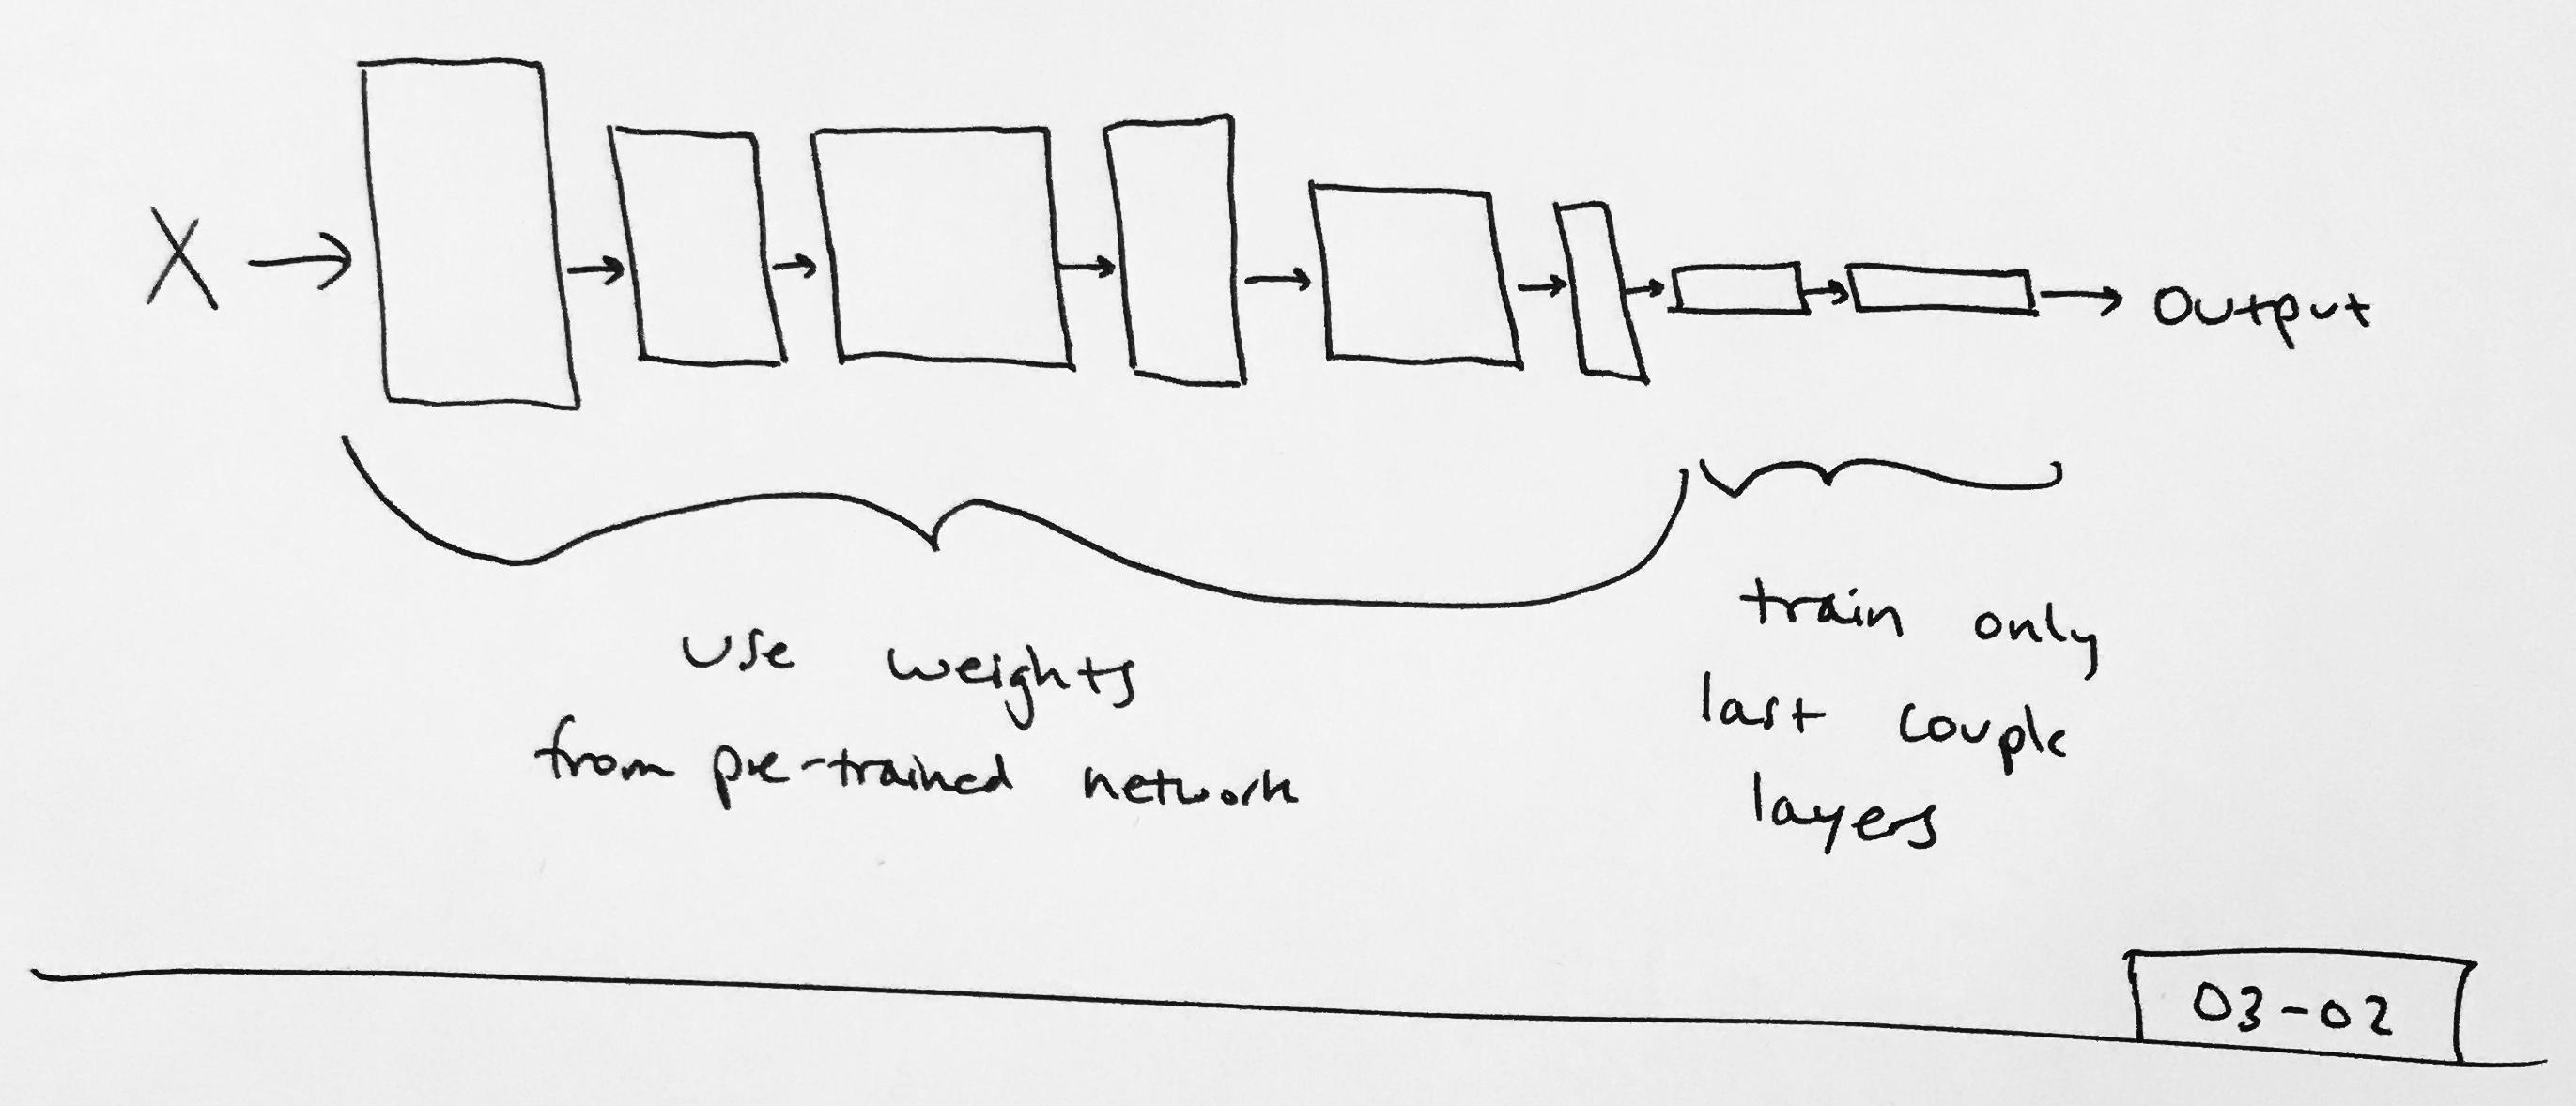 X
Output
use weights
from pre-trained network
train only
last couple
layers
03-02